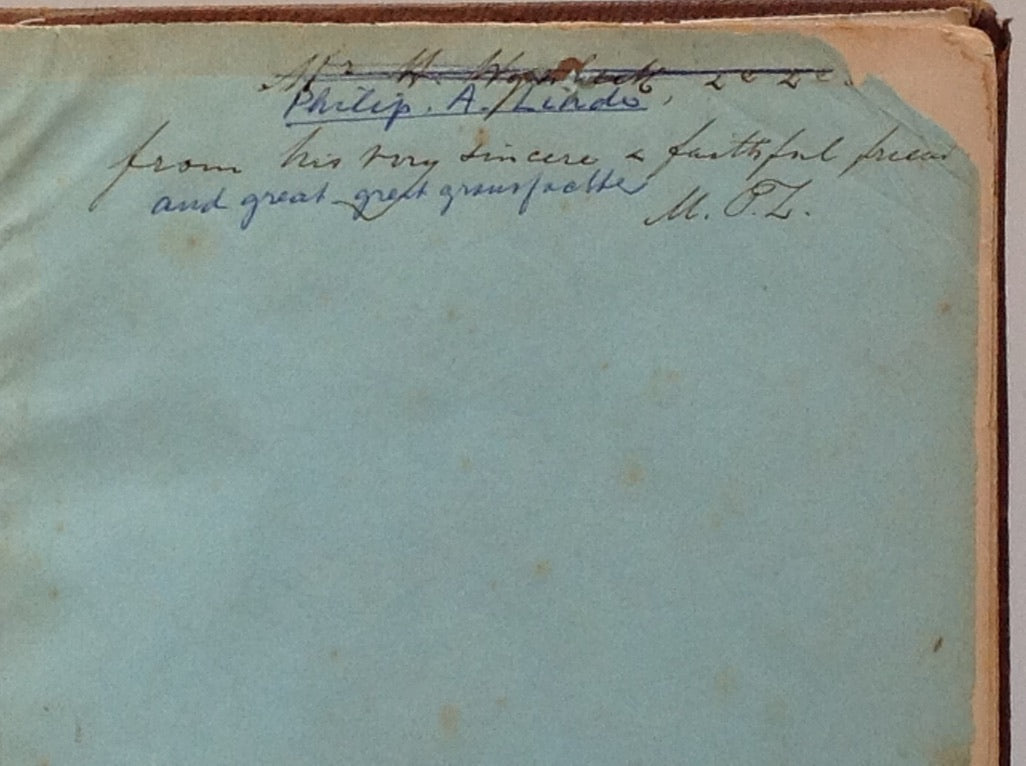 Mr H. &c &c.
Philip. A. Lindo,
from his very sincere & faithful friend
and great great grandfather
M. P. L.